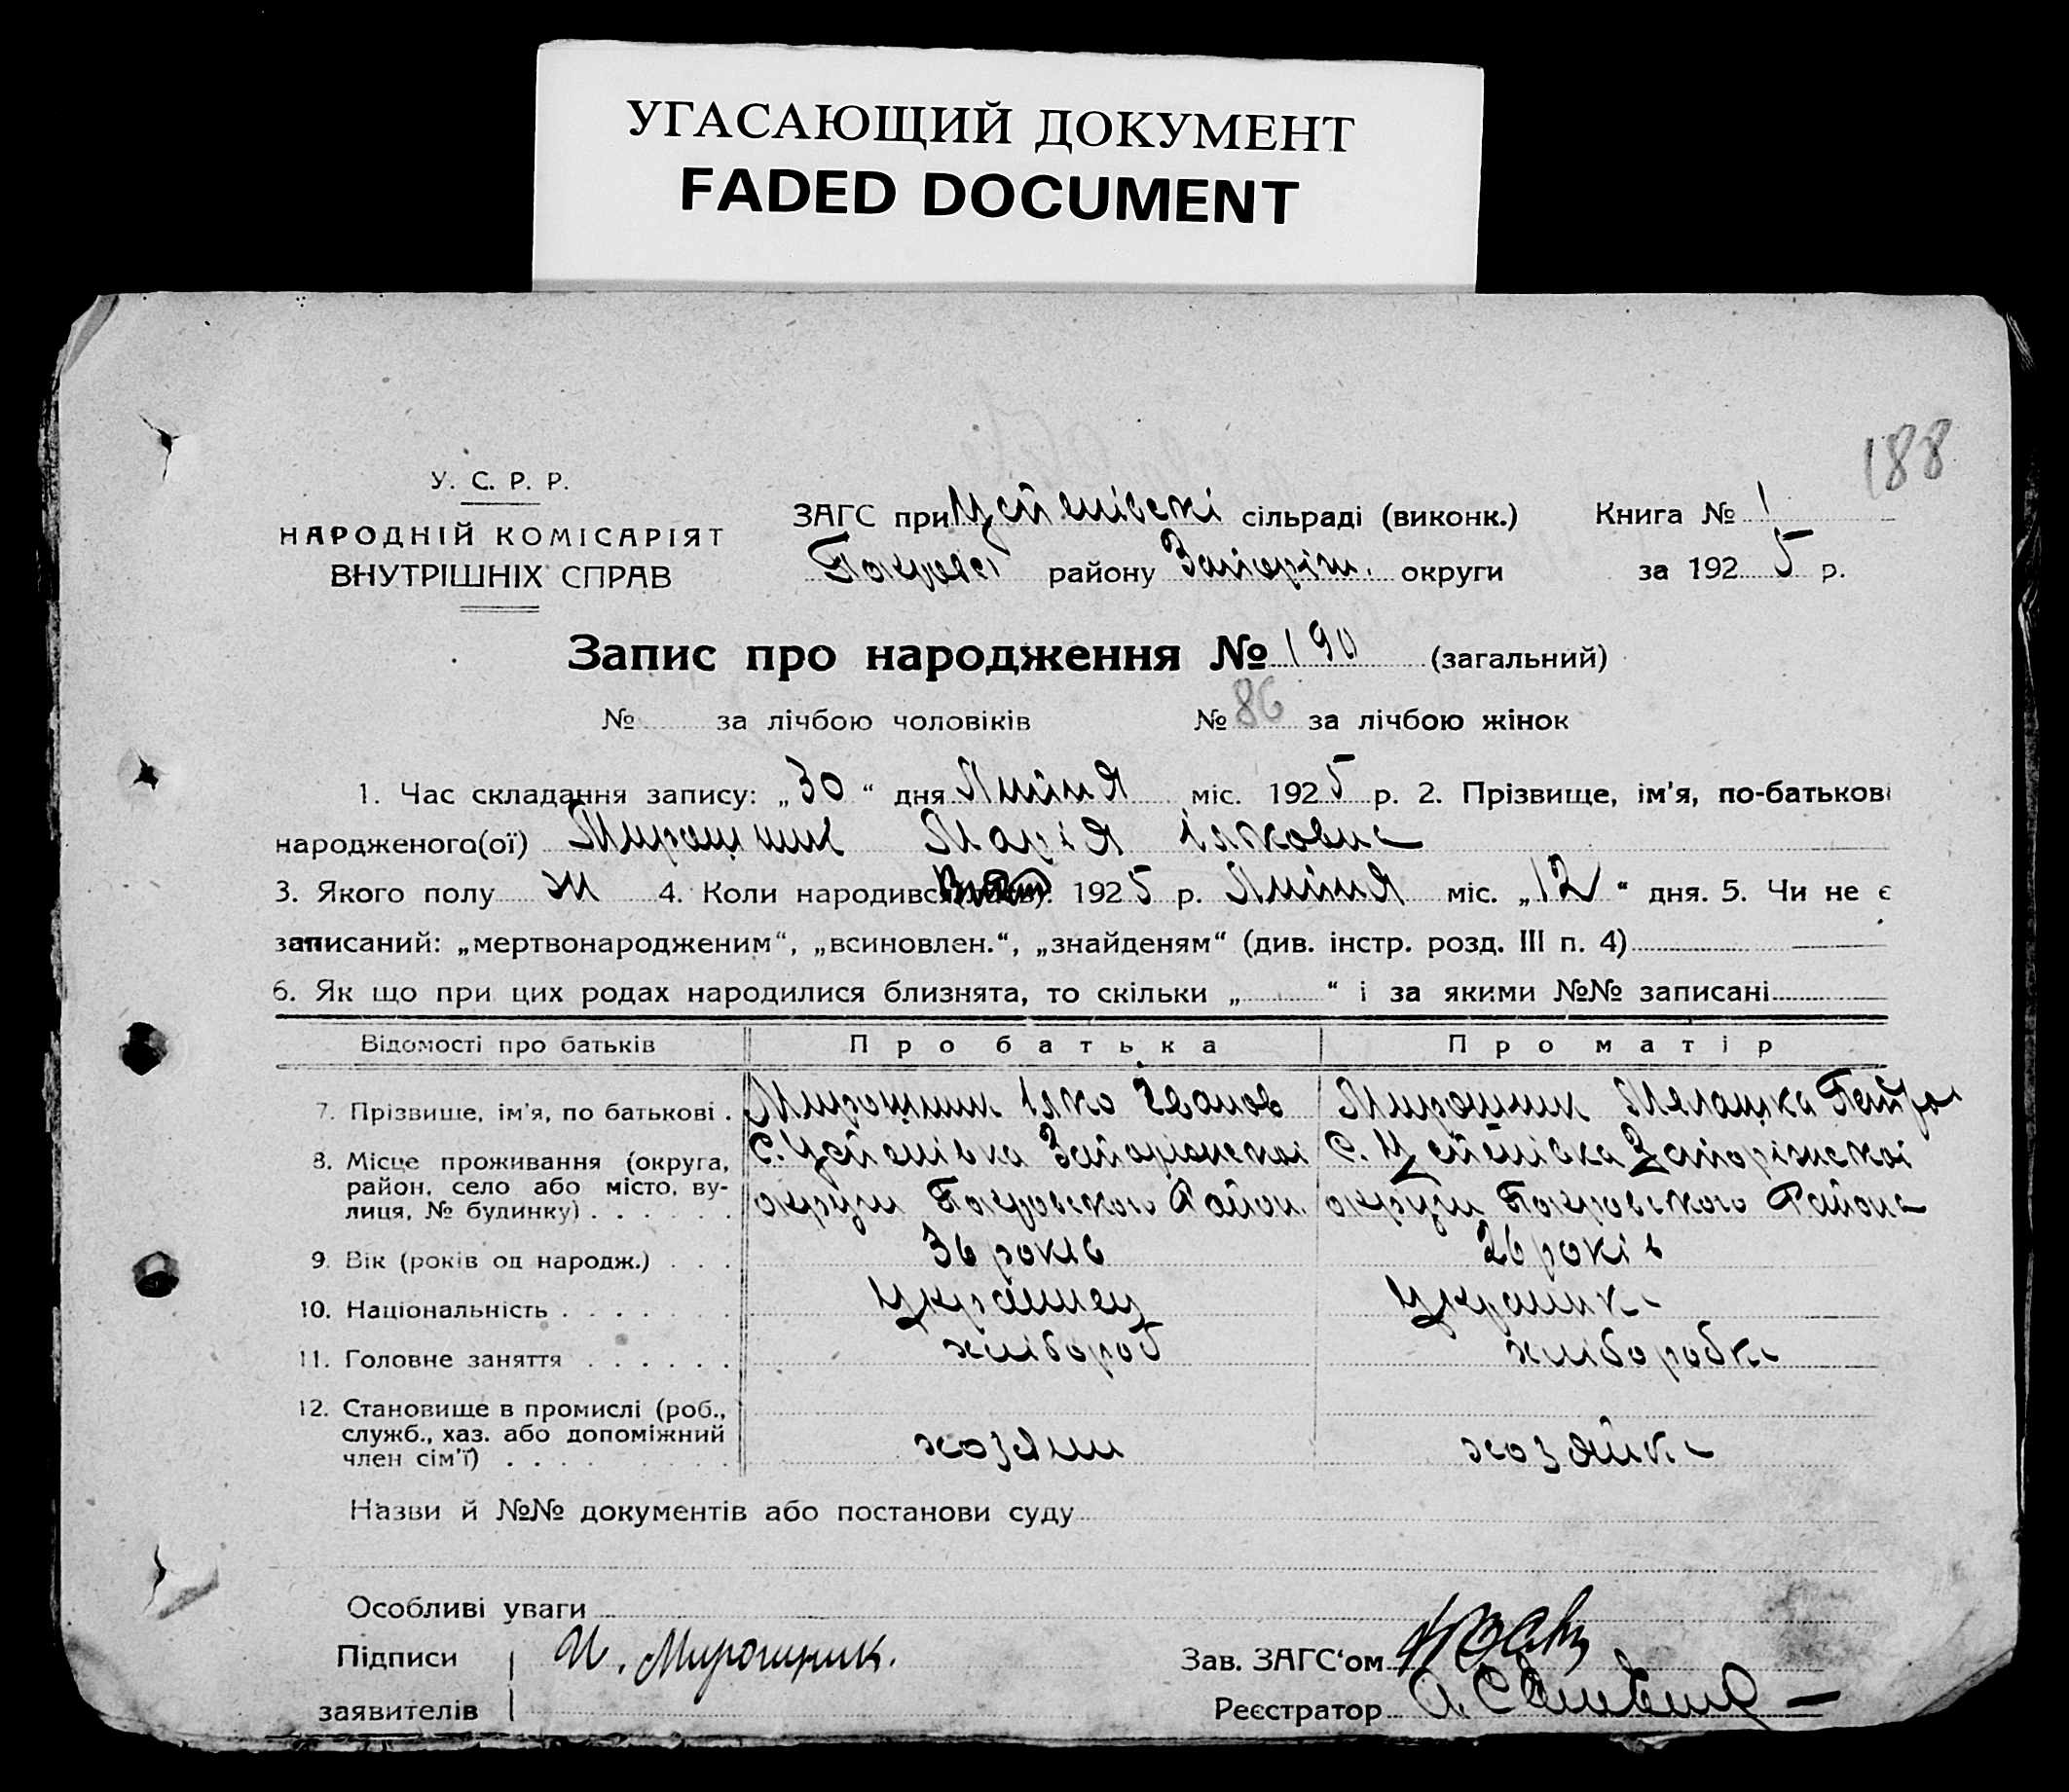 УГАСАЮЩИЙ ДОКУМЕНТ
FADED DOCUMENT
188
У. С. Р. Р.
НАРОДНІЙ КОМІСАРІЯТ
ВНУТРІШНІХ СПРАВ
ЗАГС при Устенівскі сільраді (виконк.) Книга № 1
району Запоріж. округи за 1925 р.
Запис про народження № 190 (загальний)
№ за лічбою чоловіків № 86 за лічбою жінок
1. Час складання запису: „30“ дня Липня міс. 1925 р. 2. Прізвище, ім'я, по-батькові
народженого(ої) Мирошник Марія Ільковна
3. Якого полу ж 4. Коли народивс 1925 р. Липня міс. „12“ дня. 5. Чи не є
записаний: „мертвонародженим“, „всиновлен.“, „знайденям“ (див. інстр. розд. III п. 4)
6. Як що при цих родах народилися близнята, то скільки „ “ і за якими №№ записані
Відомості про батьків Про батька Про матір
7. Прізвище, ім'я, по батькові . Мирошник Ілко Іванов Мирошник Мелашка Петро
8. Місце проживання (округа, район, село або місто, вулиця, № будинку) . . . . . . с. Устенівка Запоріжскоі с. Устенівка Запоріжскоі
округи Покровского Район. округи Покровского Района
9. Вік (років од народж.) . . . 36 років 26 років
10. Національність . . . . . . Украінец Украінка
11. Головне заняття . . . . . . хлібороб хліборобка
12. Становище в промислі (роб.,
служб., хаз. або допоміжний
член сім'ї) . . . . хозяин хозяйка
Назви й №№ документів або постанови суду
Особливі уваги
Підписи И. Мирошник. Зав. ЗАГС'ом
заявителів Реєстратор